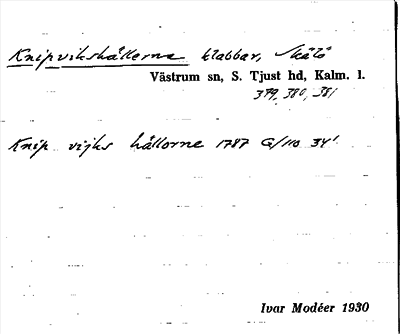 Knipvikshällerna klabbar, Skälö
Västrum sn, S. Tjust hd, Kalm. l.
379, 380, 381
Knip vijks hällorne 1787 G/110 34'
Ivar Modéer 1930